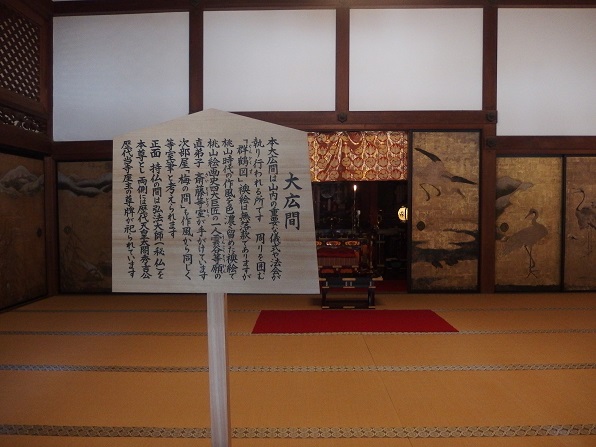 大広間
本大広間は山内の重要な儀式や法会が
執り行われる所です 周りを囲む
「群鶴図」襖絵は無落款でありますが
桃山時代の作風を色濃く留めた襖絵で
桃山絵画四大巨匠の一人雲谷等顔の
直弟子 斎藤等室が手がけています
次部屋「梅の間」も作風から同じく
等室筆と考えられます
正面 持仏の間は弘法大師(秘仏)を
本尊とし両側に歴代天皇 太閤秀吉公
歴代当寺座主の尊牌が祀られています